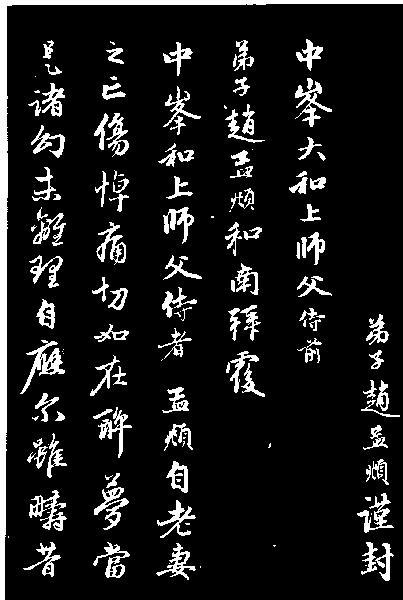 弟子趙孟頫謹封
中峯大和上師父侍前
弟子趙孟頫和南拜覆
中峯和上師父侍者孟頫自老妻
之亡傷悼痛切如在醉夢當
是諸幻未離理自應尔雖疇昔